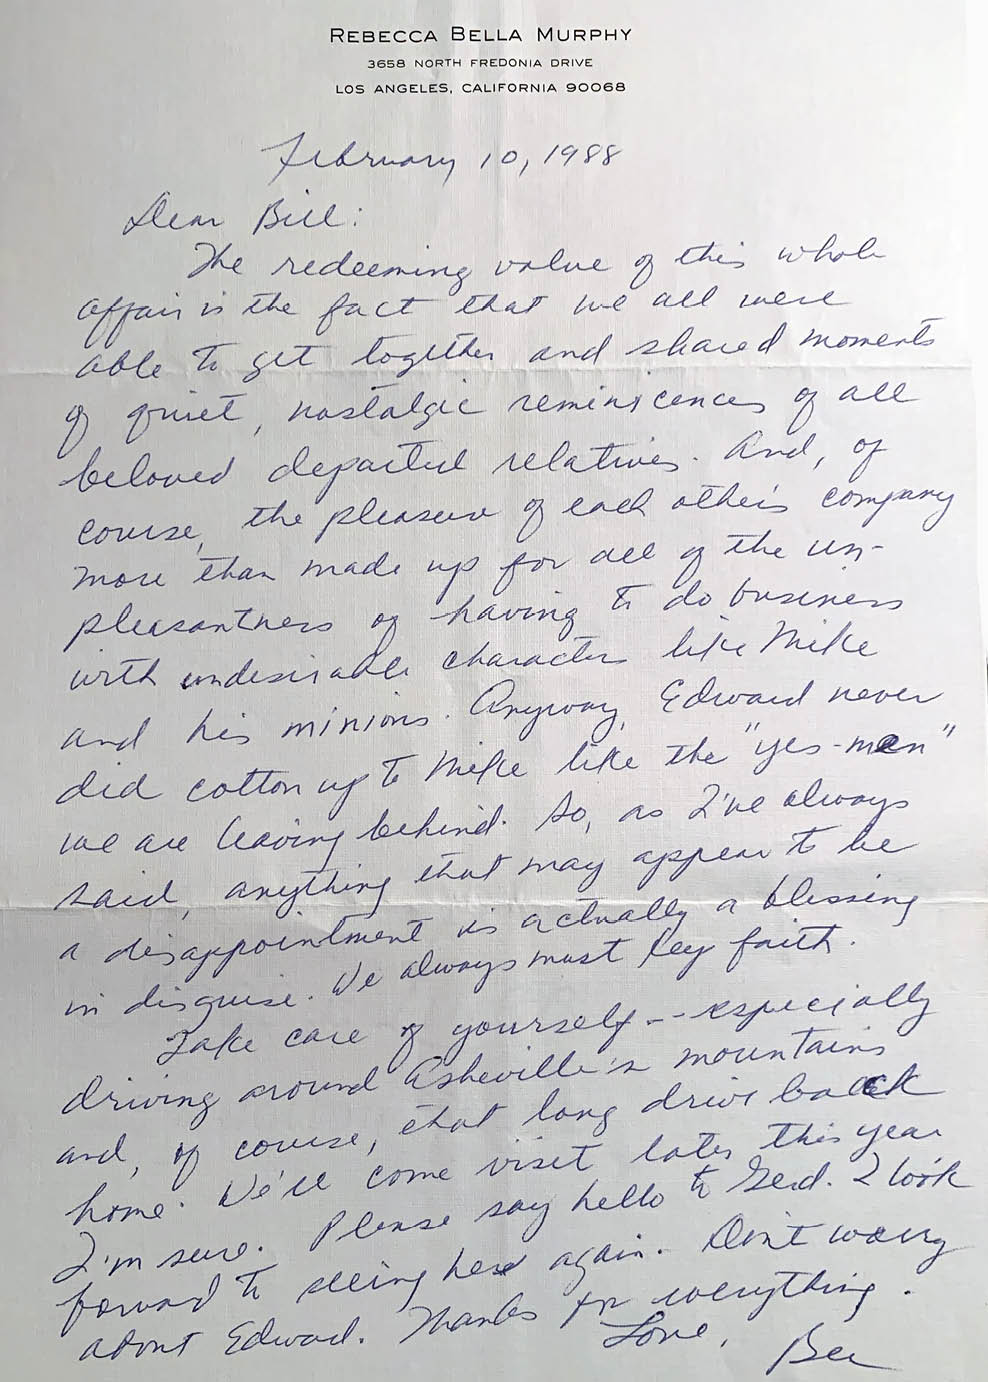 REBECCA BELLA MURPHY
3658 NORTH FREDONIA DRIVE
LOS ANGELES, CALIFORNIA 90068
February 10, 1988
Dear Bill:
The redeeming value of this whole
affair is the fact that we all were
able to get together and shared moments
of quiet, nostalgic reminiscences of all
beloved departed relatives. And, of
course, the pleasure of each other's company
more than made up for all of the un-
pleasantness of having to do business
with undesirable characters like Mike
and his minions. Anyway, Edward never
did cotton up to Mike like the "yes-men"
we are leaving behind. So, as I've always
said, anything that may appear to be
a disappointment is actually a blessing
in disguise. We always must keep faith.
Take care of yourself -- especially
driving around Asheville's mountains
and, of course, that long drive back
home. We'll come visit later this year
I'm sure. Please say hello to Gerd. I look
forward to seeing her again. Don't worry
about Edward. Thanks for everything.
Love,
Bee